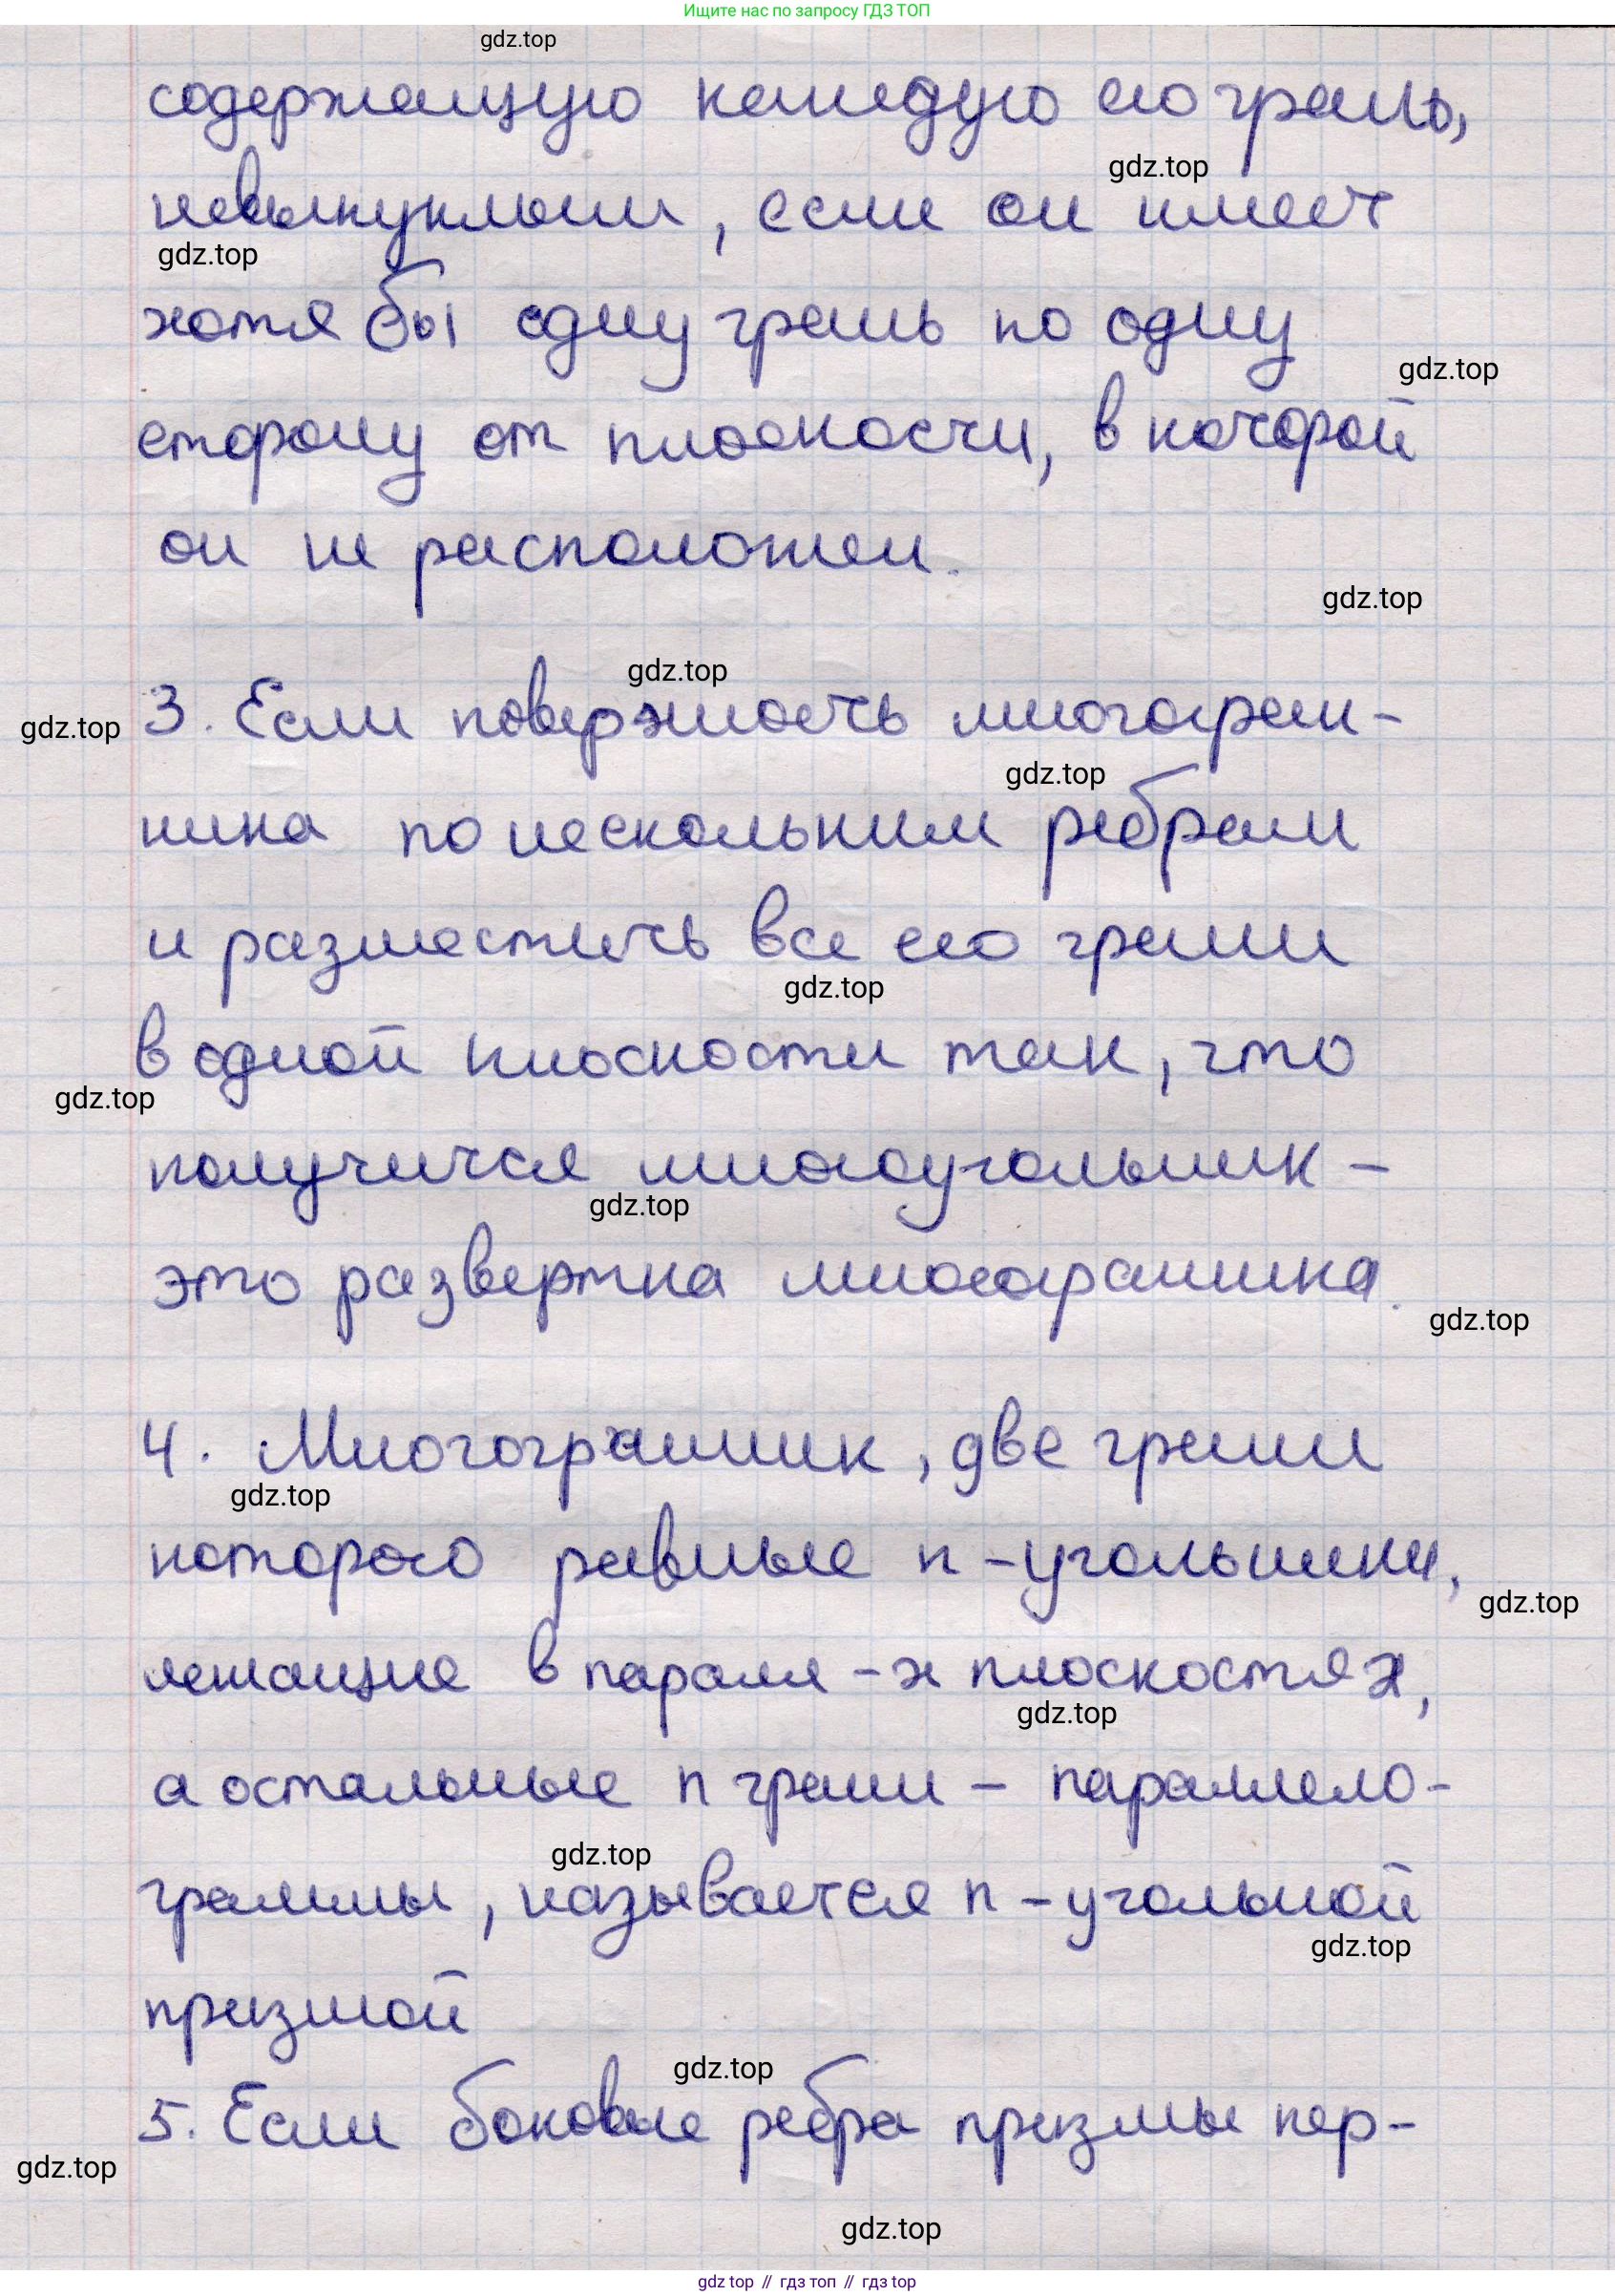 Ищите нас по запросу ГДЗ ТОП
gdz.top
содержащую каждую его грань,
gdz.top
невыпуклым, если он имеет
gdz.top
хотя бы одну грань по одну
gdz.top
сторону от плоскости, в которой
он не расположен.
gdz.top
gdz.top
gdz.top
3. Если поверхность многогран-
gdz.top
ника по нескольким ребрам
и разместить все его грани
gdz.top
в одной плоскости так, что
gdz.top
получится многоугольник -
gdz.top
это развертка многогранника.
gdz.top
4. Многогранник, две грани
gdz.top
которого равные n-угольники,
gdz.top
лежащие в паралл-х плоскостях,
gdz.top
а остальные n грани - параллело-
gdz.top
граммы, называется n-угольной
gdz.top
призмой
gdz.top
5. Если боковые ребра призмы пер-
gdz.top
gdz.top
gdz top // гдз топ // гдз top